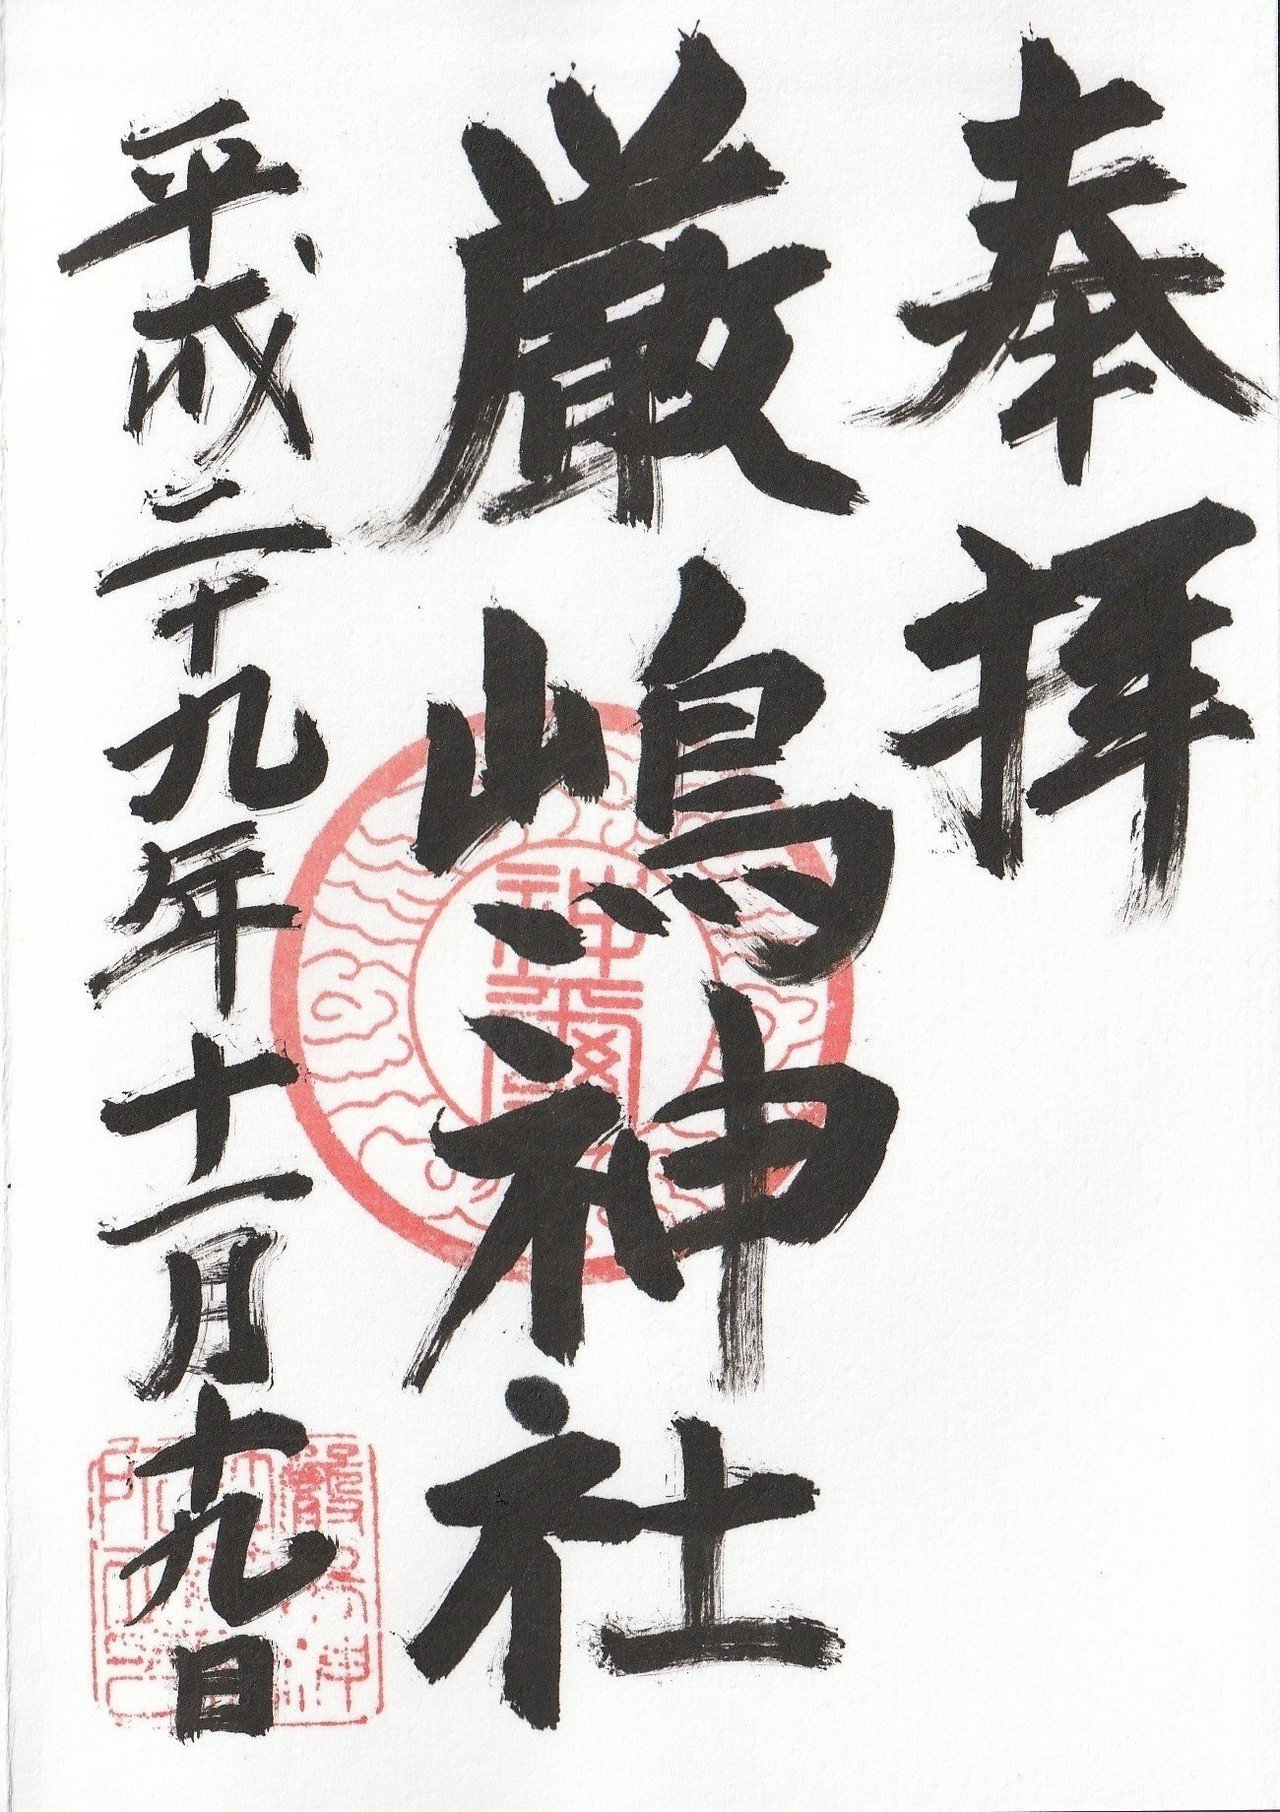 奉拝
厳嶋神社
平成二十九年十一月十九日